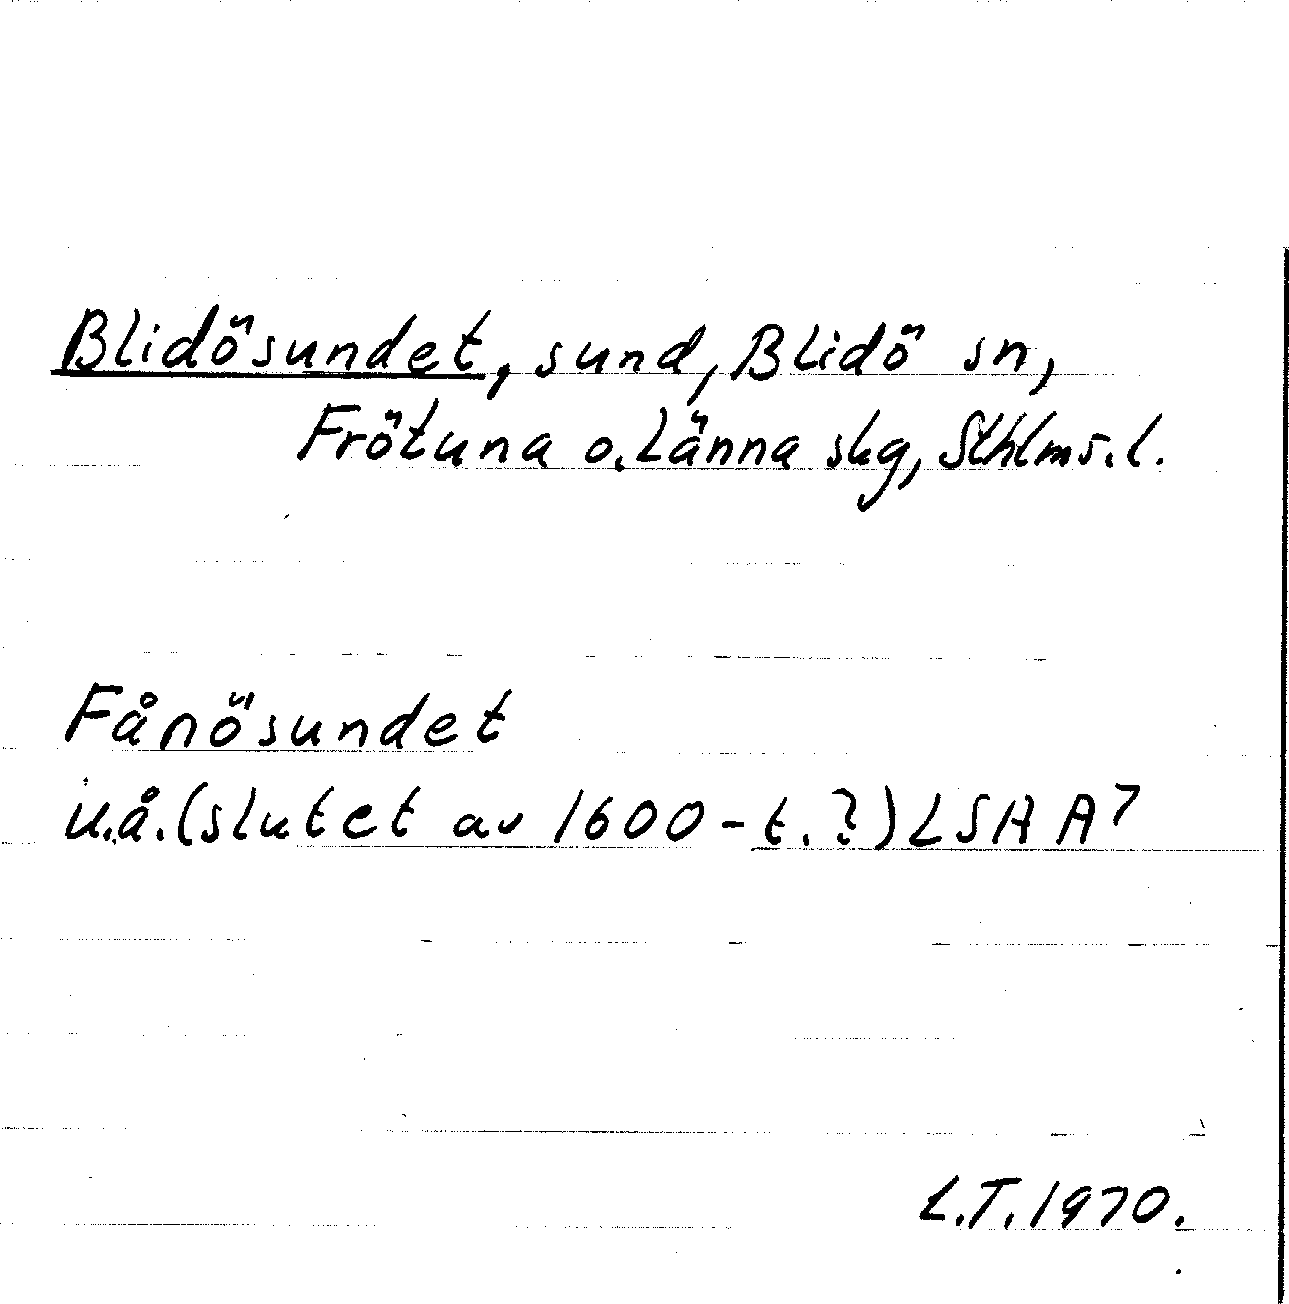 Blidösundet, sund, Blidö sn,
Frötuna o. Länna skg, Sthlms. l.
Fånösundet
u.å. (slutet av 1600-t.?) LSA A7
L.T. 1970.